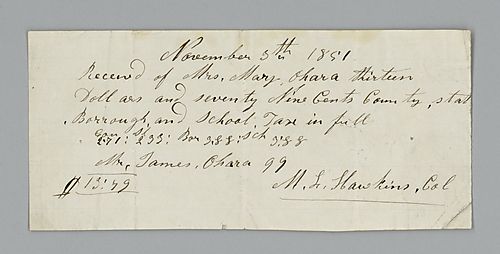 November 5th 1851
Receivd of Mrs, Mary, Ohara thirteen
Dollars and seventy Nine Cents County, stat
Borrough, and School, Tax in full
Coun St Bor Sch
271: 233: 388: 388
Mr, James, Ohara 99
13:79
M. L. Hawkins, Col